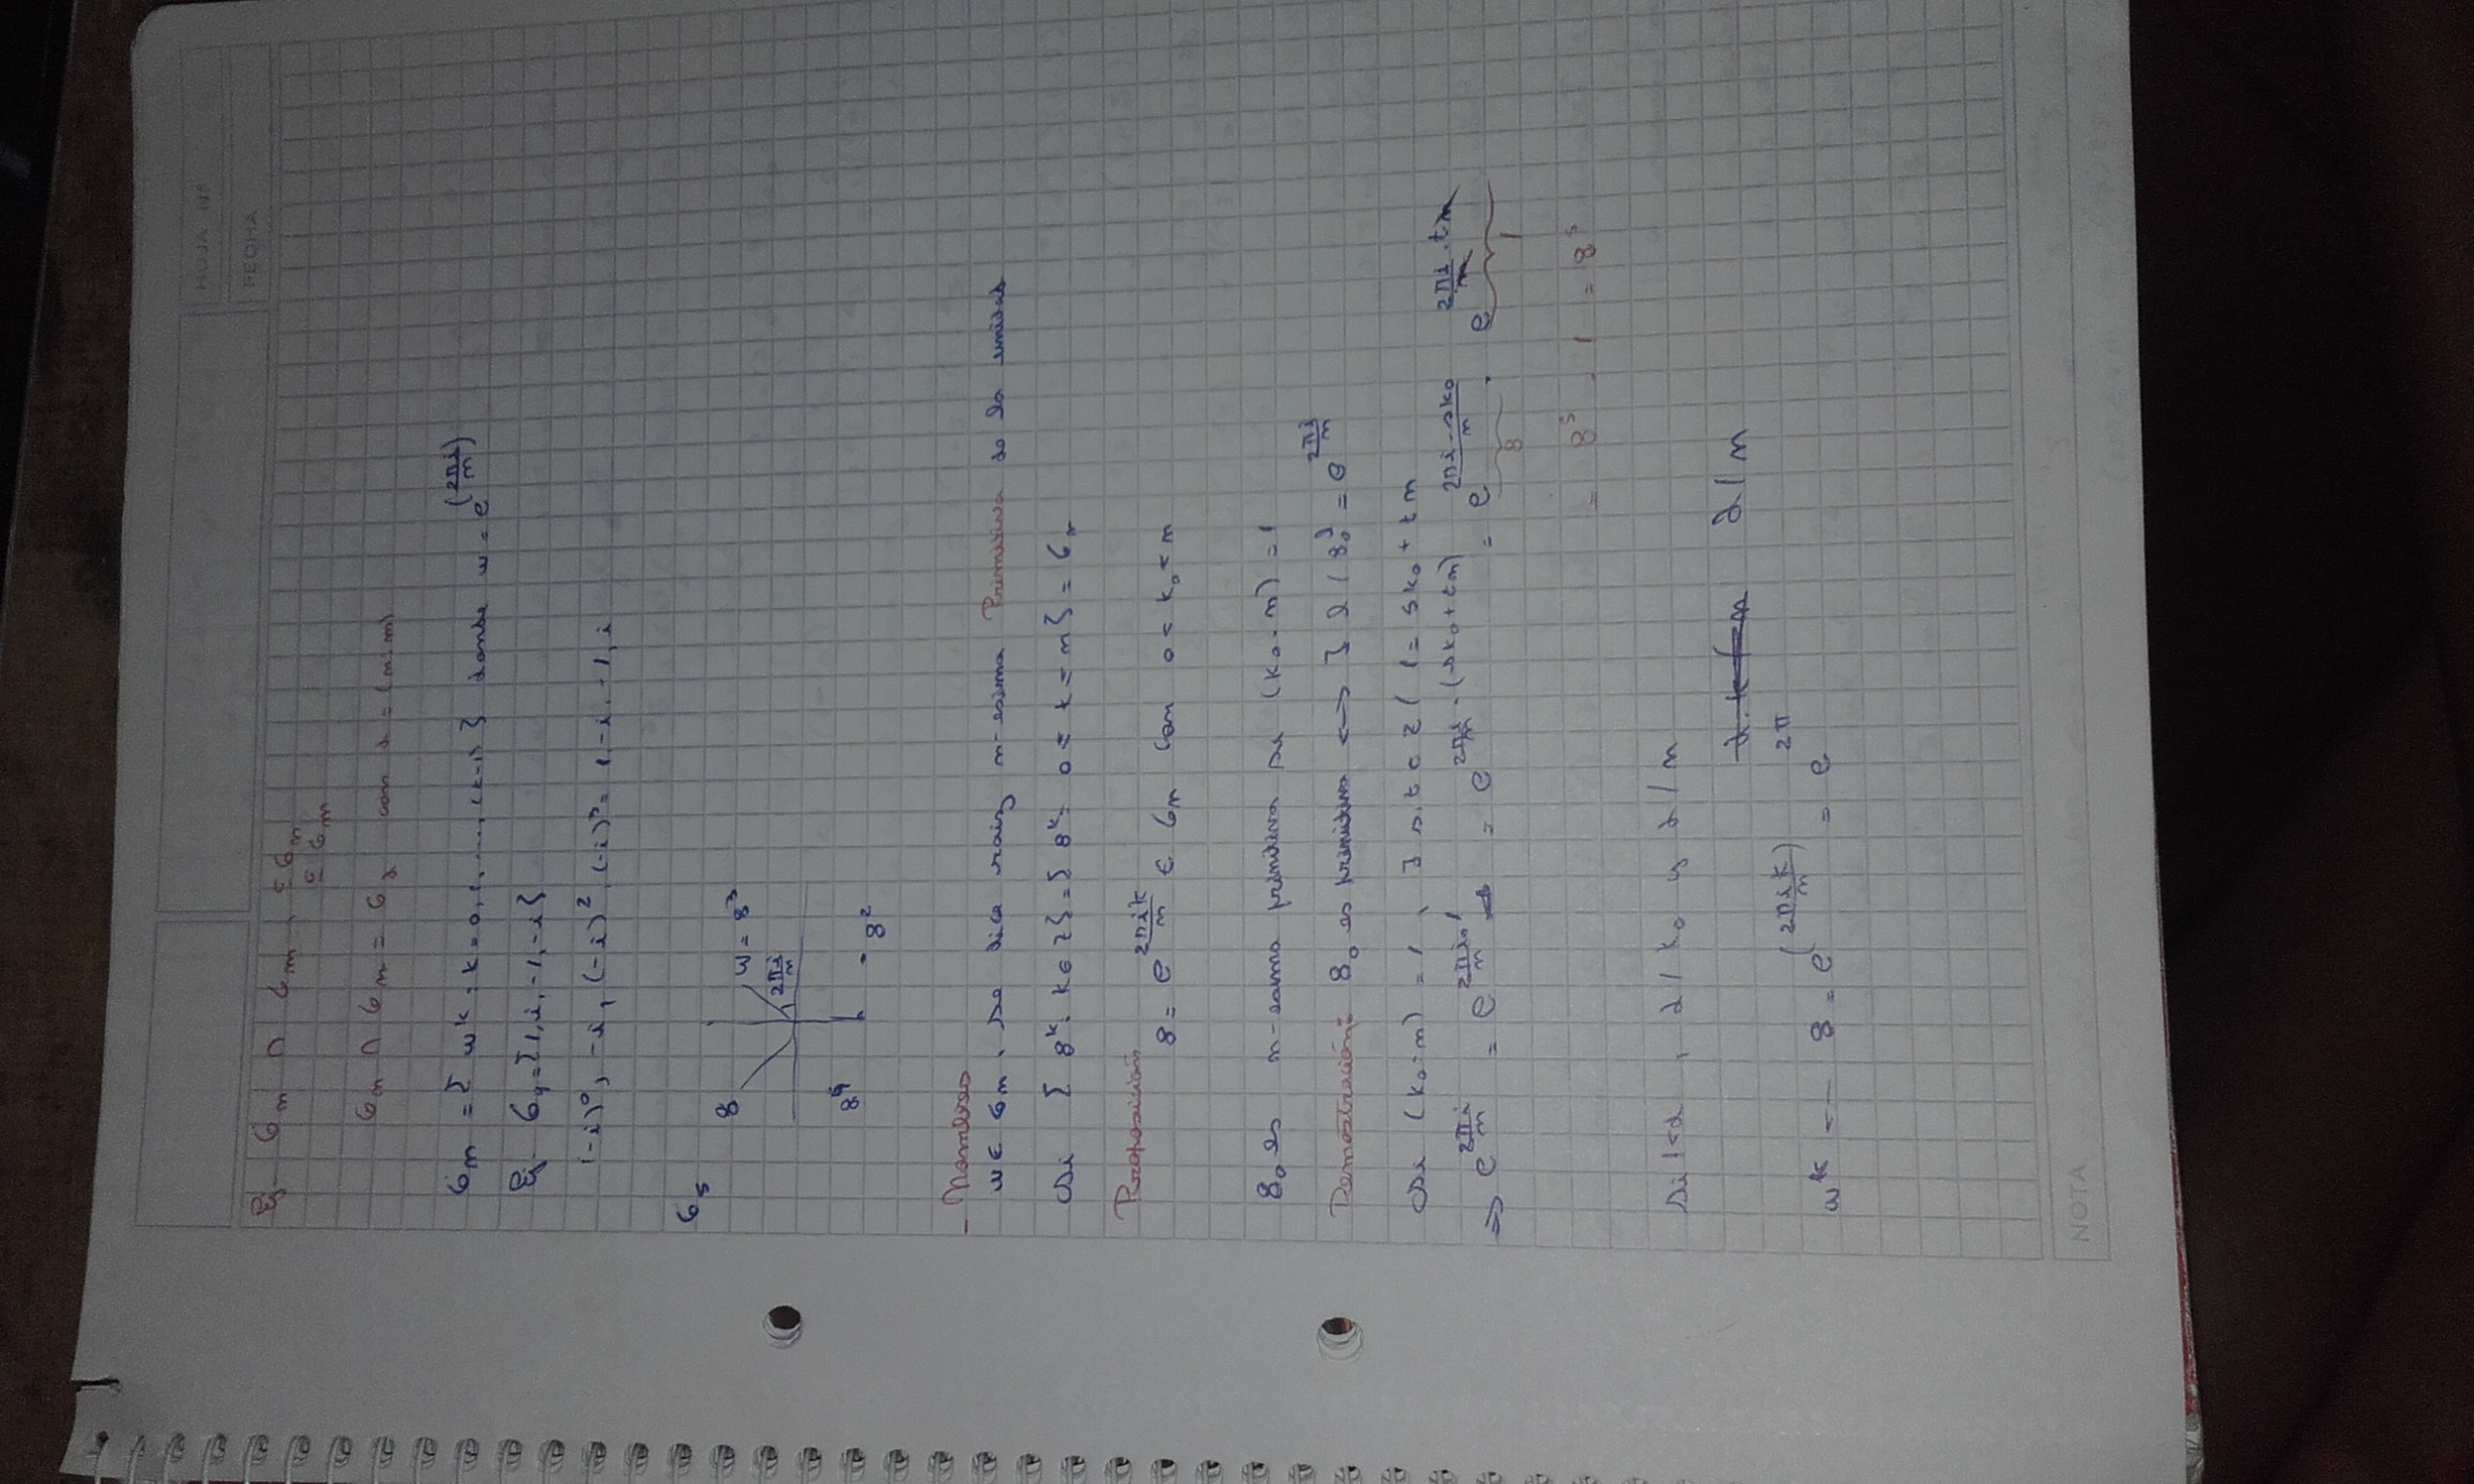 HOJA Nº
FECHA
Ej- G_n ∩ G_m . ⊆ G_n
⊆ G_m
G_n ∩ G_m = G_d con d = (n:m)
G_n = { w^k : k = 0, 1, ...., (k-1) } donde w = e^(2πi/n)
Ej- G_4 = {1, i, -1, -i}
(-i)^0, -i, (-i)^2, (-i)^3 = 1, -i, -1, i
G_5
8
w = 8^3
2πi/n
8^4
8^2
- Nombres
w ∈ G_n . Se dice raiz n-esima Primitiva de la unidad
Si { 8^k : k ∈ Z } = { 8^k : 0 ≤ k ≤ n } = G_n
Proposición
8 = e^(2πik/n) ∈ G_n con 0 ≤ k_0 < n
8_0 es n-esima primitiva si (k_0 : n) = 1
Demostración: 8_0 es primitiva <-> ∃ l / 8_0^l = e^(2πi/n)
Si (k_0 : n) = 1 , ∃ s, t ∈ Z / 1 = sk_0 + tn
=> e^(2πi/n) = e^(2πi/n . 1) = e^(2πi/n . (sk_0 + tn)) = e^(2πi . sk_0/n) . e^(2πi/n . tn)
8 1
= 8^s . 1 = 8^s
Si 1<d , d / k_0 y d / n
d / n
w^k <-- 8 = e^(2πik/n) = e^2π
NOTA